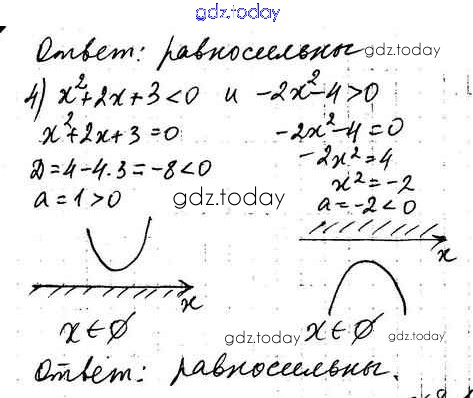 gdz.today
Ответ: равносильны gdz.today
4) x²+2x+3<0 и -2x²-4>0
x²+2x+3=0
D=4-4·3=-8<0
a=1>0
-2x²-4=0
-2x²=4
x²=-2
a=-2<0
gdz.today
x
x
x∈∅
gdz.today
x∈∅
gdz.today
Ответ: равносильны.